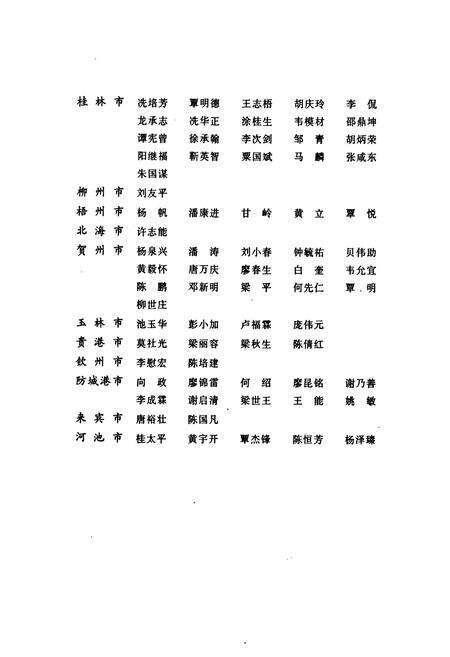 桂林市 冼培芳 覃明德 王志梧 胡庆玲 李侃
龙承志 冼华正 涂桂生 韦模材 邵鼎坤
谭宪曾 徐承翰 李次剑 邹青 胡炳荣
阳继福 靳英智 粟国斌 马麟 张咸东
朱国谋
柳州市 刘友平
梧州市 杨帆 潘康进 甘岭 黄立 覃悦
北海市 许志能
贺州市 杨泉兴 潘涛 刘小春 钟毓祐 贝伟助
黄毅怀 唐万庆 廖春生 白奎 韦允宜
陈鹏 邓新明 梁平 何先仁 覃明
柳世庄
玉林市 池玉华 彭小加 卢福霖 庞伟元
贵港市 莫社光 梁丽容 梁秋生 陈倩红
钦州市 李慰宏 陈培建
防城港市 向政 廖锦雷 何绍 廖昆铭 谢乃善
李成霖 谢启清 梁世王 王能 姚敏
来宾市 唐裕壮 陈国凡
河池市 桂太平 黄宇开 覃杰锋 陈恒芳 杨泽臻